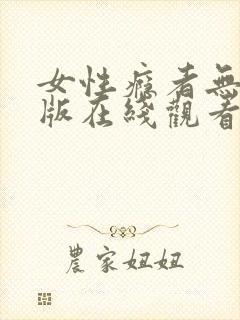 女性癮者無
版在綫觀看
農家妞妞